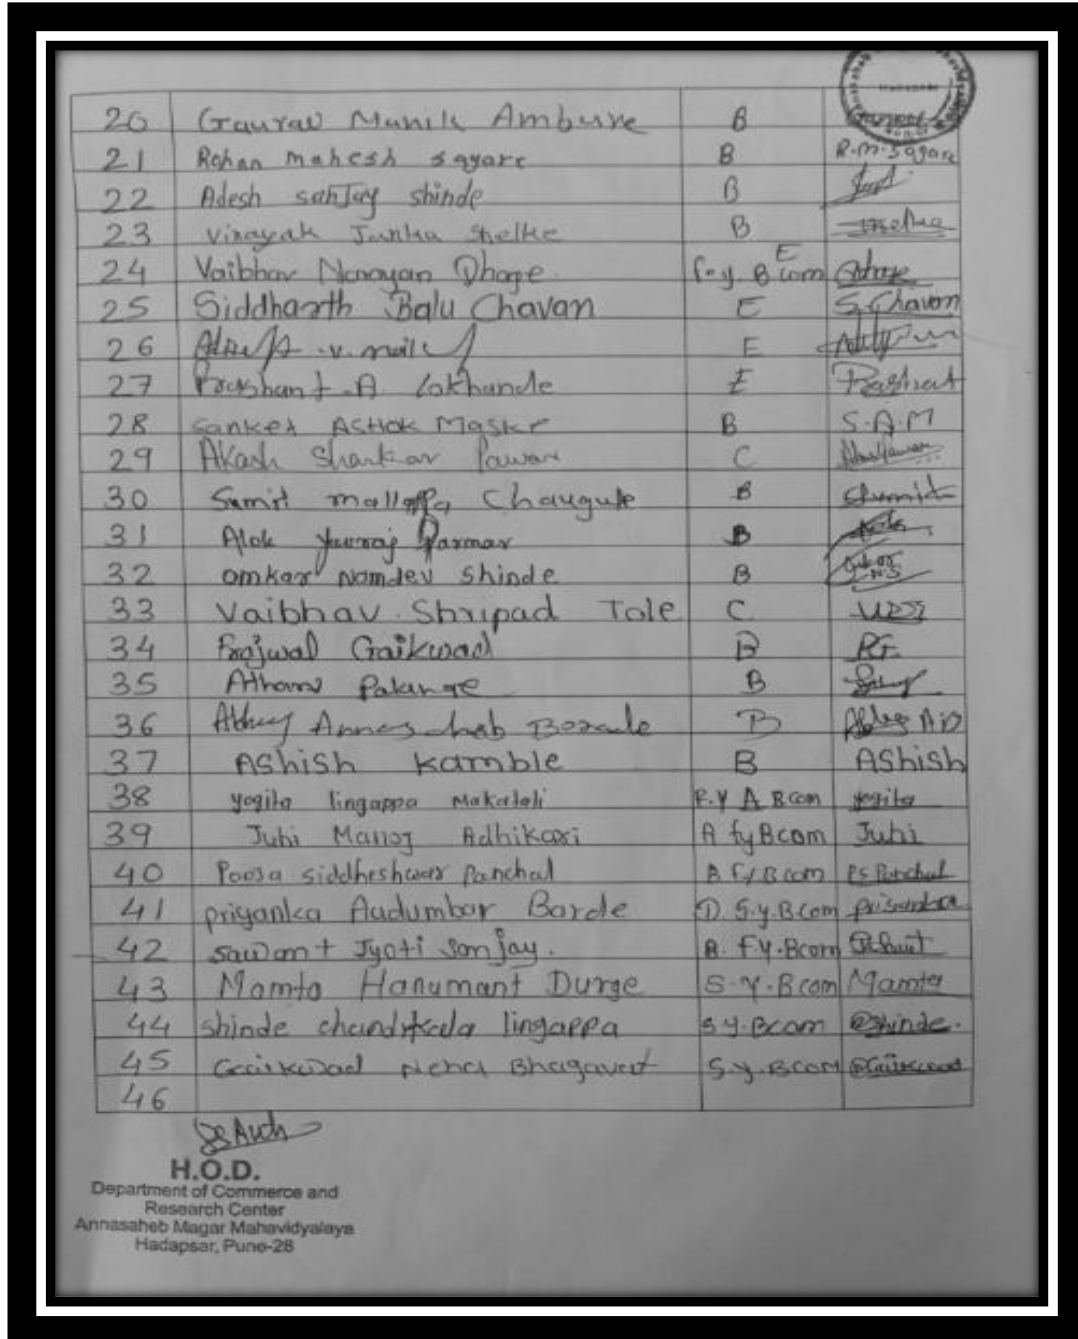 20 Gaurav Manik Ambure B
21 Rohan mahesh sagare B R.M.Sagare
22 Adesh sanjay shinde B
23 vinayak Janka shelke B
24 Vaibhav Narayan Dhage f.y. B com E
25 Siddharth Balu Chavan E S.Chavan
26 E
27 Prashant .A. Lokhande E
28 sanket ASHOK Maske B S.A.M
29 Akash Shankar Pawar C
30 Sumit mallappa Chaugule B
31 Alok yuvraj Parmar B
32 omkar Namdev shinde B
33 Vaibhav Shripad Tole C
34 Prajwal Gaikwad B
35 Atharv B
36 Abhay Annasaheb B
37 AShish kamble B AShish
38 yogita lingappa Makatali F.Y A B com yogita
39 Juhi Manoj Adhikari A fyBcom Juhi
40 Pooja siddheshwar Panchal B F/y B com P.S Panchal
41 priyanka Audumbar Barde D S.y.B.com priyanka
42 sawant Jyoti Sanjay. B. FY.Bcom
43 Mamta Hanumant Durge S.Y.Bcom Mamta
44 shinde chandrkala lingappa S.Y.Bcom shinde.
45 Gaikwad Neha Bhagavat S.y.BCom
46
H.O.D.
Department of Commerce and
Research Center
Annasaheb Magar Mahavidyalaya
Hadapsar, Pune-28